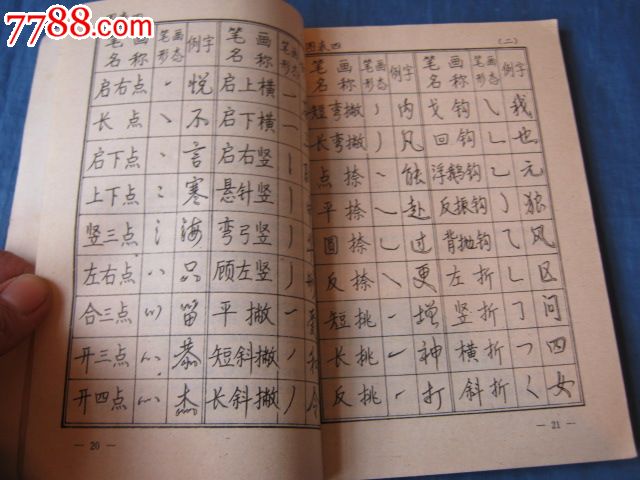 7788.com
笔画名称 笔画形态 例字 笔画名称 笔画形态
启右点 丶 悦 启上横 一
长点 丶 不 启下横 一
启下点 言 启右竖 丨
上下点 寒 悬针竖 丨
竖三点 氵 海 弯弓竖 丿
左右点 品 顾左竖 丿
合三点 笛 平撇
开三点 恭 短斜撇 丿
开四点 灬 杰 长斜撇 丿
— 20 —
图表四 (二)
笔画名称 笔画形态 例字 笔画名称 笔画形态 例字
短弯撇 丿 内 戈钩 我
长弯撇 丿 凡 回钩 乚 也
点捺 能 浮鹅钩 乚 元
平捺 赴 反振钩 狼
圆捺 过 背抛钩 风
反捺 更 左折 区
短挑 增 竖折 问
长挑 神 横折 四
反挑 打 斜折 女
— 21 —
7788.com